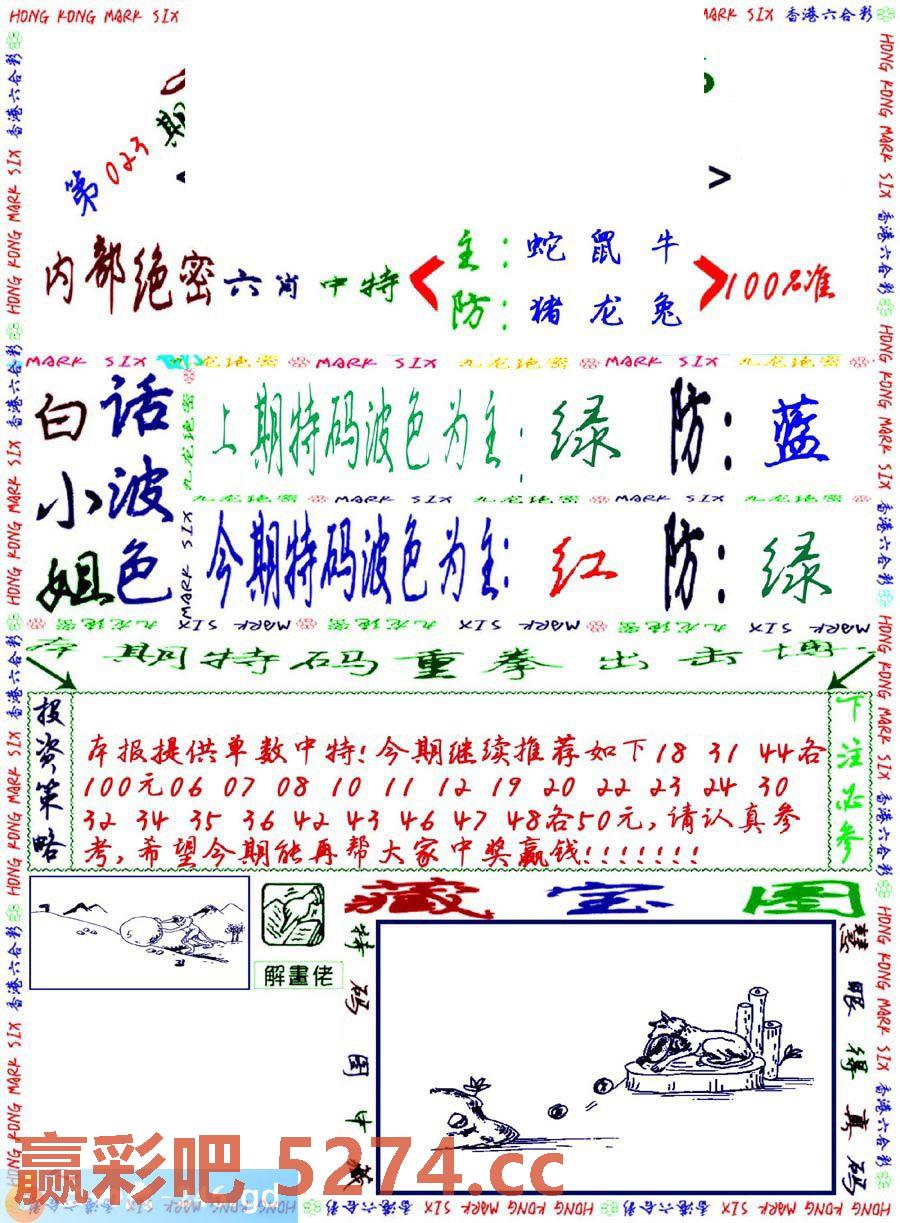 HONG KONG MARK SIX
MARK SIX 香港六合彩
第023期
内部绝密六肖中特
主：蛇 鼠 牛
防：猪 龙 兔
100%准
MARK SIX 九龙绝密 MARK SIX 九龙绝密 MARK SIX 九龙绝密
白话
小波
姐色
上期特码波色为主：绿 防：蓝
九龙绝密 MARK SIX 九龙绝密 MARK SIX 九龙绝密
今期特码波色为主：红 防：绿
MARK SIX 九龙绝密 MARK SIX 九龙绝密 MARK SIX
本期特码重拳出击博
投资策略
本报提供单数中特！今期继续推荐如下18 31 44各
100元06 07 08 10 11 12 19 20 22 23 24 30
32 34 35 36 42 43 46 47 48各50元,请认真参
考,希望今期能再帮大家中奖赢钱!!!!!!!
下注必参
解畫佬
藏宝图
特码图中藏
慧眼得真码
赢彩吧 5274.cc
HONG KONG MARK SIX 香港六合彩